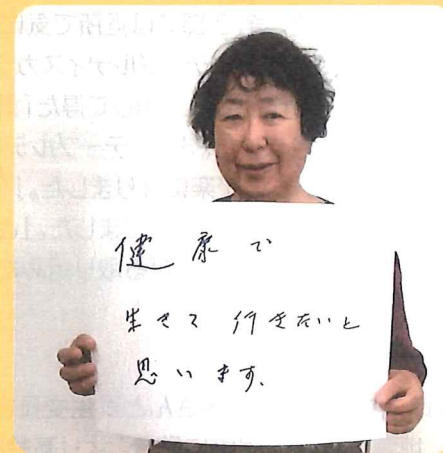 健康で
生きて行きたいと
思います。